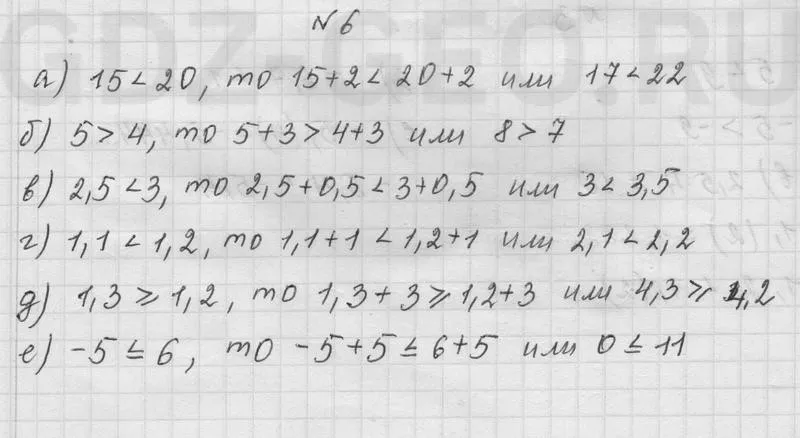 GDZ-GEO.RU
№ 6
а) 15 < 20, то 15+2 < 20+2 или 17 < 22
б) 5 > 4, то 5+3 > 4+3 или 8 > 7
в) 2,5 < 3, то 2,5+0,5 < 3+0,5 или 3 < 3,5
г) 1,1 < 1,2, то 1,1+1 < 1,2+1 или 2,1 < 2,2
д) 1,3 ⩾ 1,2, то 1,3+3 ⩾ 1,2+3 или 4,3 ⩾ 4,2
е) -5 ≤ 6, то -5+5 ≤ 6+5 или 0 ≤ 11